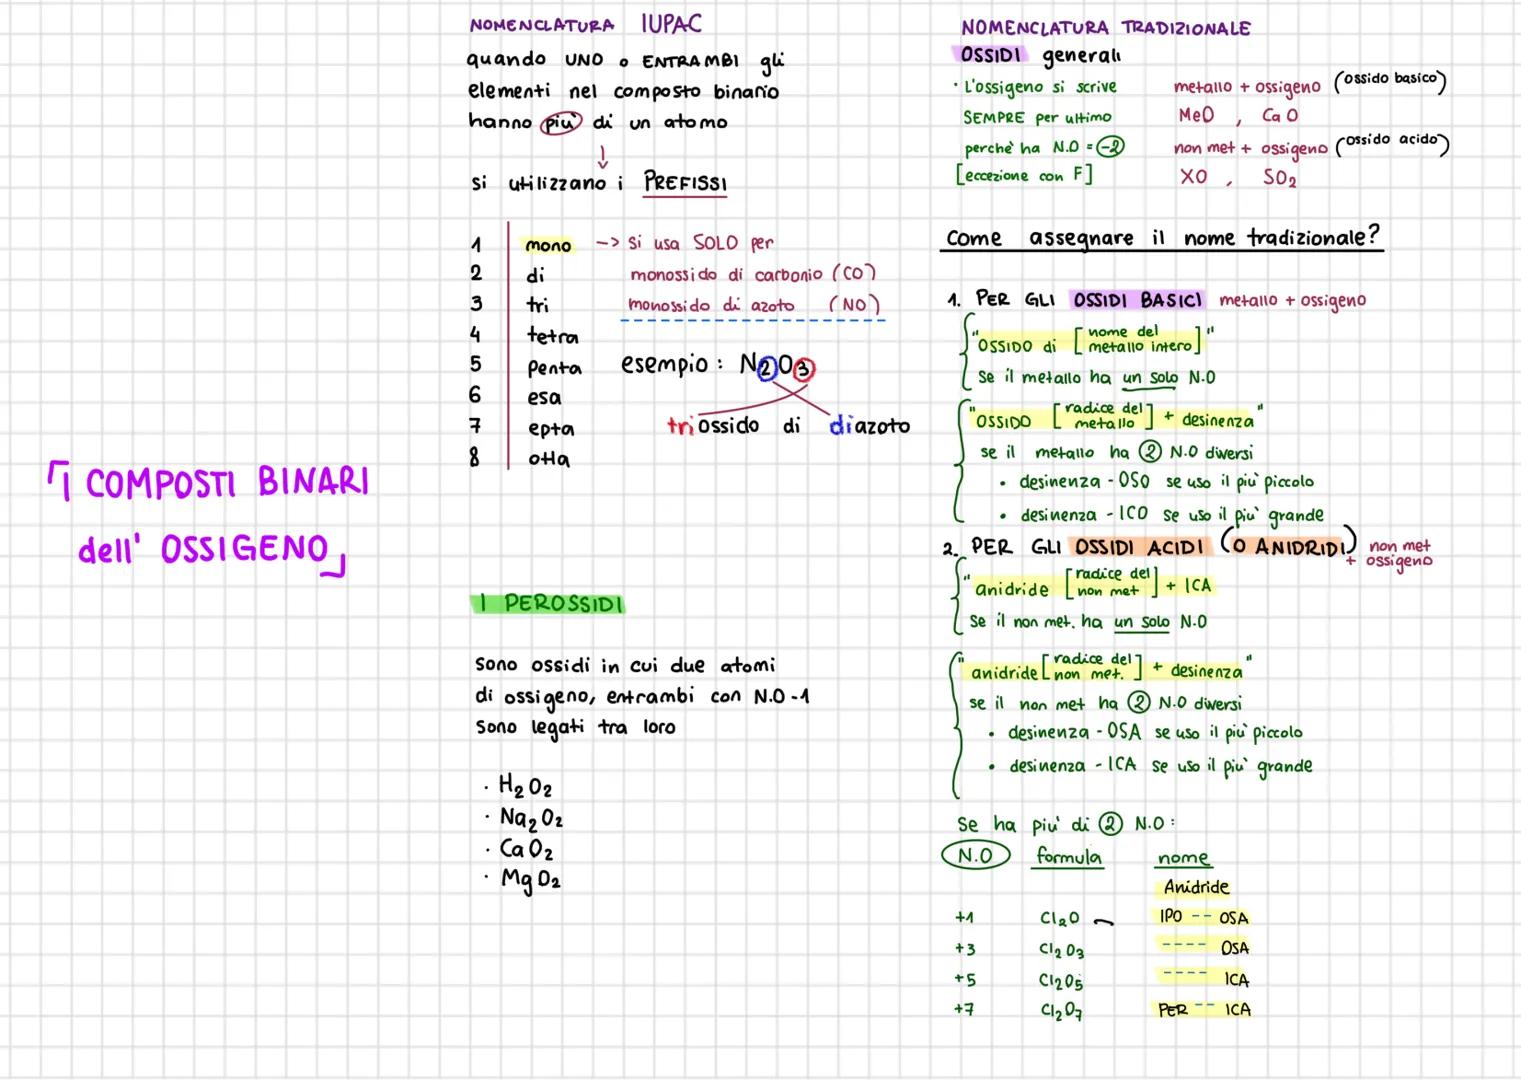 「I COMPOSTI BINARI
dell' OSSIGENO」
NOMENCLATURA IUPAC
quando UNO o ENTRAMBI gli
elementi nel composto binario
hanno più di un atomo
↓
si utilizzano i PREFISSI
1 mono -> si usa SOLO per
2 di monossido di carbonio (CO)
3 tri monossido di azoto (NO)
4 tetra
5 penta esempio: N2O3
6 esa
7 epta triossido di diazoto
8 otta
I PEROSSIDI
sono ossidi in cui due atomi
di ossigeno, entrambi con N.O -1
sono legati tra loro
· H2O2
· Na2O2
· CaO2
· MgO2
NOMENCLATURA TRADIZIONALE
OSSIDI generali
· L'ossigeno si scrive metallo + ossigeno (ossido basico)
SEMPRE per ultimo MeO , CaO
perchè ha N.O = -2 non met + ossigeno (ossido acido)
[eccezione con F] XO , SO2
Come assegnare il nome tradizionale?
1. PER GLI OSSIDI BASICI metallo + ossigeno
"OSSIDO di [nome del metallo intero]"
se il metallo ha un solo N.O
"OSSIDO [radice del metallo] + desinenza"
se il metallo ha 2 N.O diversi
• desinenza -OSO se uso il più piccolo
• desinenza -ICO se uso il più grande
2. PER GLI OSSIDI ACIDI (O ANIDRIDI) non met + ossigeno
"anidride [radice del non met] + ICA
se il non met. ha un solo N.O
"anidride [radice del non met.] + desinenza"
se il non met ha 2 N.O diversi
• desinenza -OSA se uso il più piccolo
• desinenza -ICA se uso il più grande
Se ha più di 2 N.O:
N.O formula nome
Anidride
+1 Cl2O IPO -- OSA
+3 Cl2O3 ---- OSA
+5 Cl2O5 ---- ICA
+7 Cl2O7 PER -- ICA